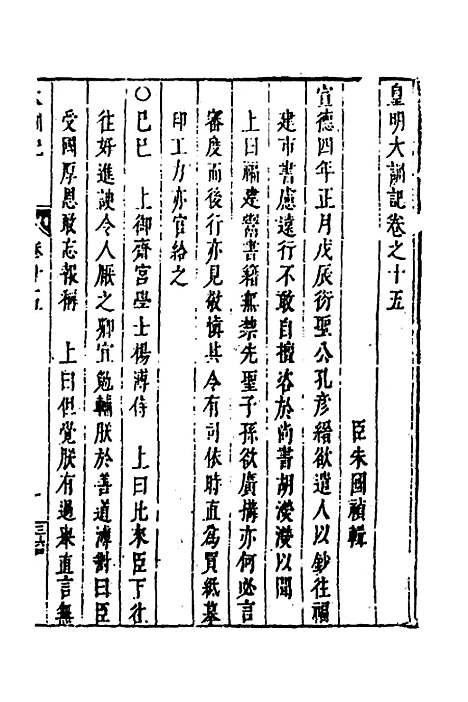 皇明大訓記卷之十五
臣朱國禎輯
宣德四年正月戊辰衍聖公孔彥縉欲遣人以鈔往福
建市書慮遠行不敢自擅咨於尚書胡濙濙以聞
上曰福建鬻書籍無禁先聖子孫欲廣搆亦何必言
審度而後行亦見敬慎其令有司依時直為買紙墓
印工力亦官給之
○己巳 上御齋宮學士楊溥侍 上曰比來臣下往
往好進諛令人厭之卿宜勉輔朕於善道溥對曰臣
受國厚恩敢忘報稱 上曰但覺朕有過來直言無
卷十五